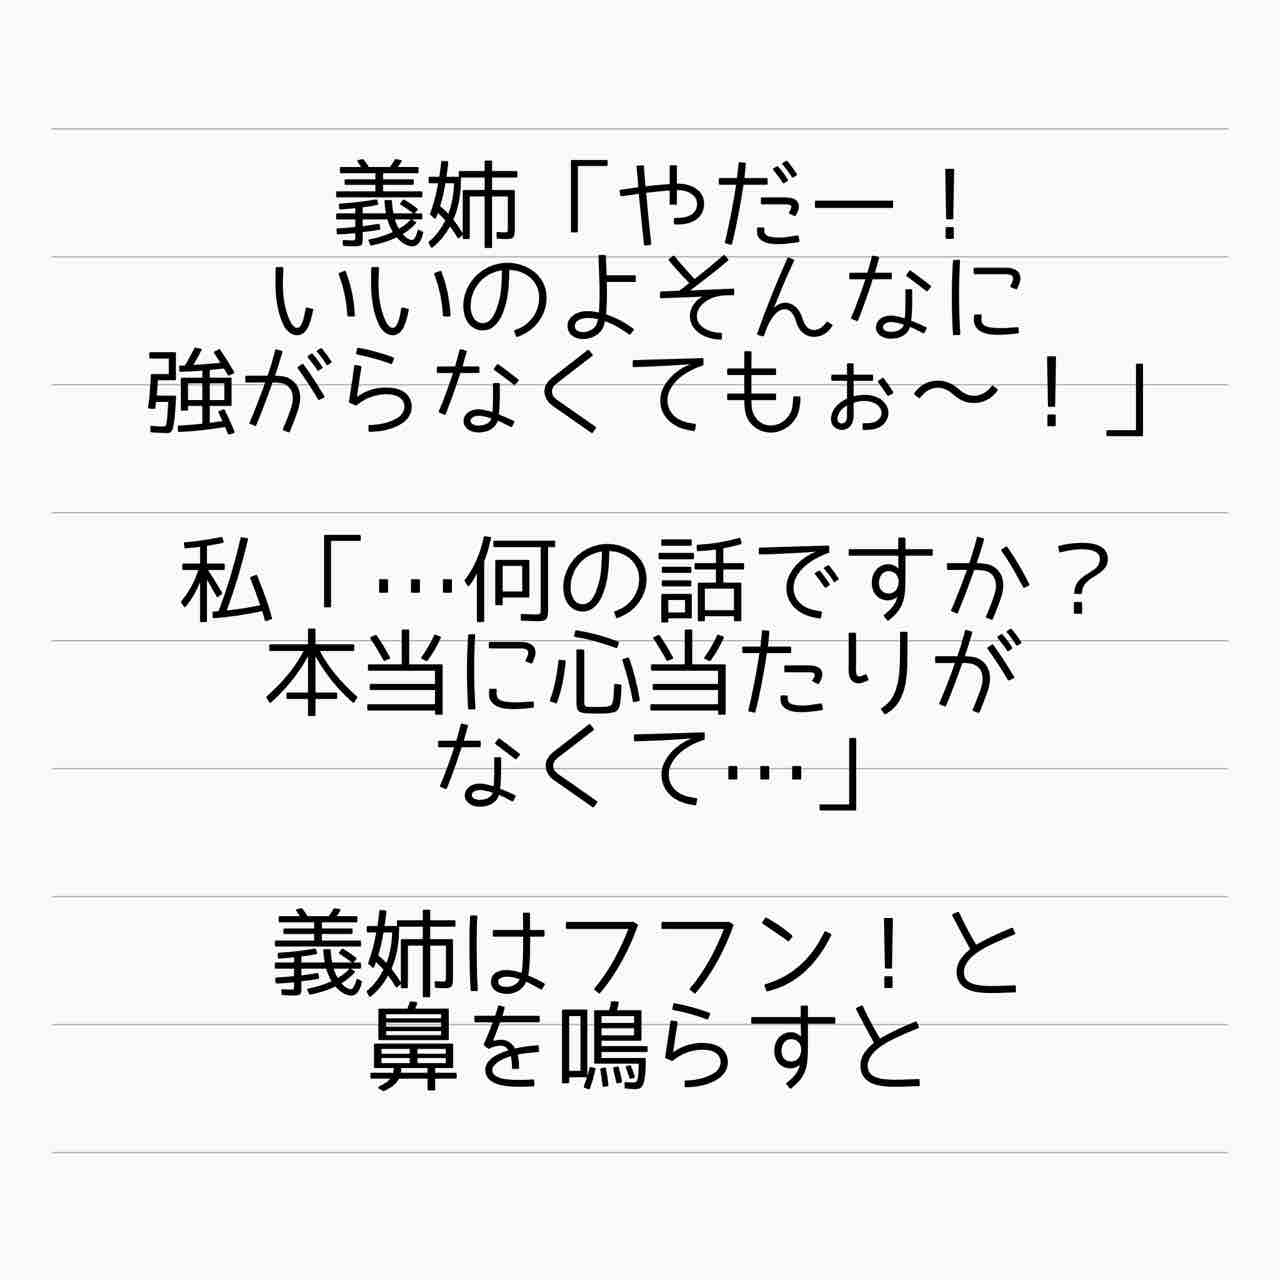 義姉「やだー！
いいのよそんなに
強がらなくてもぉ〜！」
私「…何の話ですか？
本当に心当たりが
なくて…」
義姉はフフン！と
鼻を鳴らすと